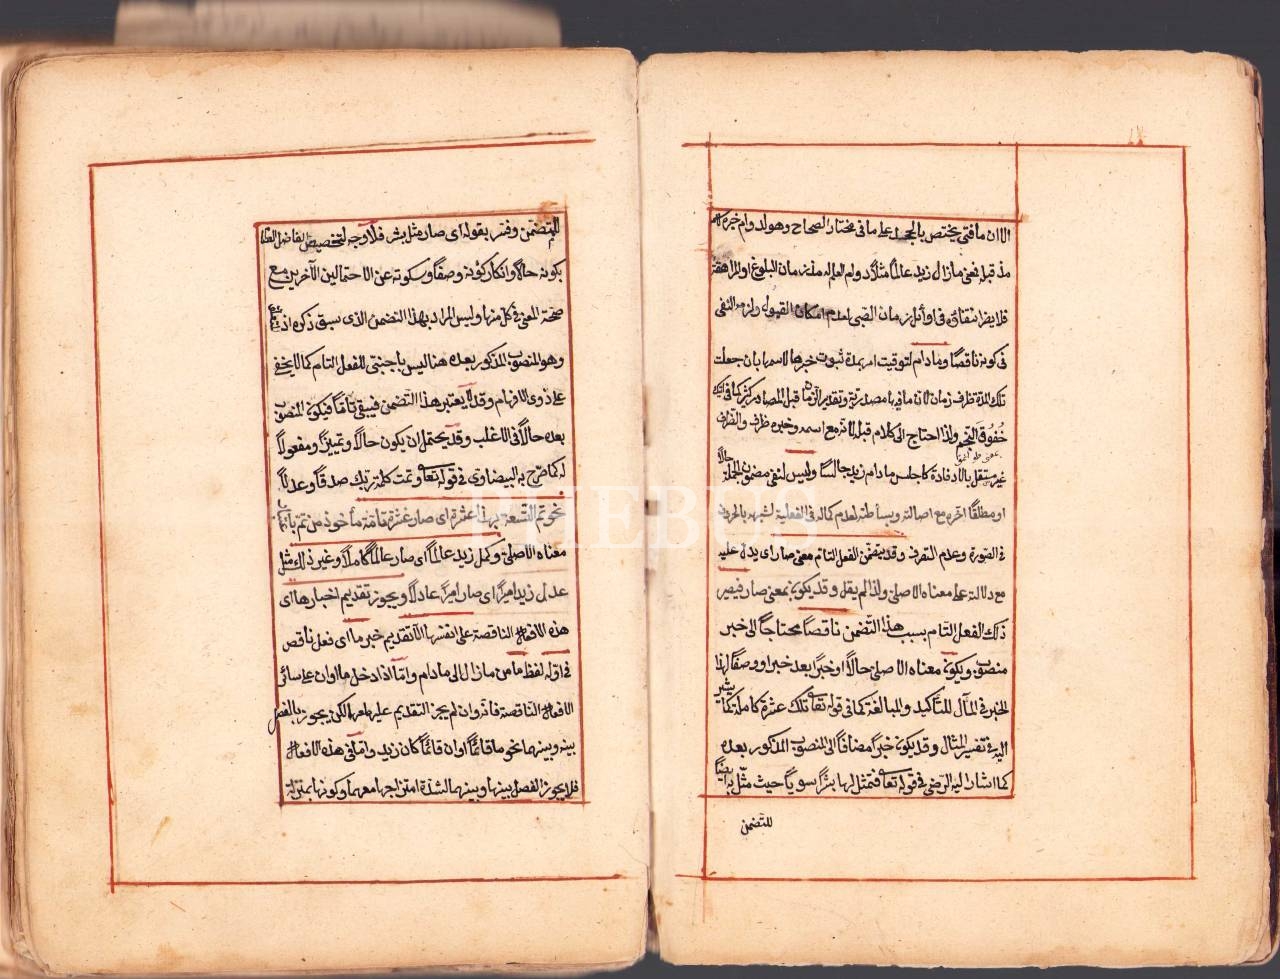 الا ان ما فتئ يختص بالجحد على ما فى مختار الصحاح وهو لدوام خبره
مذ قبله فمعنى ما زال زيد عالمًا مثلاً دوام العلم له من زمان البلوغ او المراهقة
فلا يضر انتفاؤه فى اوائل زمان الصبى لعدم امكان القبول ولزمه النفى
فى كونه ناقصًا وما دام لتوقيت امر بمدة ثبوت خبرها لاسمها بان جعلت
تلك المدة ظرف زمان لان ما فيها مصدرية وتقدير الزمان قبل المصادر كثير كما فى اتيك
خُفُوقَ النجم ولذا احتاج الى كلام قبله لانه مع اسمه وخبره ظرف والظرف
غير مستقل بالافادة كاجلس ما دام زيد جالسًا وليس لنفى مضمون الجملة حالاً
او مطلقًا اخره مع اصالته وبساطته لعدم كماله فى الفعلية لشبهه بالحرف
فى الصورة وعدم التصرف وقد يتضمن الفعل التام معنى صار اى يدل عليه
مع دلالته على معناه الاصلى ولذا لم يقل وقد يكون بمعنى صار فيصير
ذلك الفعل التام بسبب هذا التضمن ناقصًا محتاجًا الى خبر
منصوب ويكون معناه الاصلى حالاً او خبرًا بعد خبر او وصفًا لهذا
الخبر فى المآل للتأكيد والمبالغة كما فى قوله تعالى تلك عشرة كاملة كما يشير
اليه فى تفسير المثال وقد يكون خبرًا مضافًا الى المنصوب المذكور بعده
كما اشار اليه الرضى فى قوله تعالى فتمثل لها بشرًا سويًا حيث مثّل به ايضًا
للتضمن
للتضمن وفسر بقوله اى صار مثل بشر فلا وجه لتخصيص الفاضل العصام
بكونه حالاً وانكار كونه وصفًا وسكوته عن الاحتمالين الآخرين مع
صحة المعنى فى كل منها وليس المراد بهذا التضمن الذى سبق ذكره اذ
وهو المنصوب المذكور بعده هنا ليس باجنبى للفعل التام كما لا يخفى
على ذوى الافهام وقد لا يعتبر هذا التضمن فيبقى تامًا فيكون المنصوب
بعده حالاً فى الاغلب وقد يحتمل ان يكون حالاً وتمييزًا ومفعولاً
له كما صرح به البيضاوى فى قوله تعالى وتمت كلمة ربك صدقًا وعدلاً
نحو تم التسعة بهذا عشرة اى صار عشرة تامة مأخوذ من تم
معناه الاصلى وكمل زيد عالمًا اى صار عالمًا كاملاً وغير ذلك مثل
عدل زيد اميرًا اى صار اميرًا عادلاً ويجوز تقديم اخبارها اى
هذه الافعال الناقصة على انفسها الا تقديم خبر ما اى فعل ناقص
فى اوله لفظ ما من ما زال الى ما دام واما اذا دخل ما او ان على سائر
الافعال الناقصة فانه وان لم يجز التقديم عليه معها لكن يجوز بالفصل
بينه وبينهما نحو ما قائمًا او ان قائمًا كان زيد واما فى هذه الافعال
فلا يجوز الفصل بينها وبينهما لشدة امتزاجها معهما وكونها بمنزلة
PHEBUS